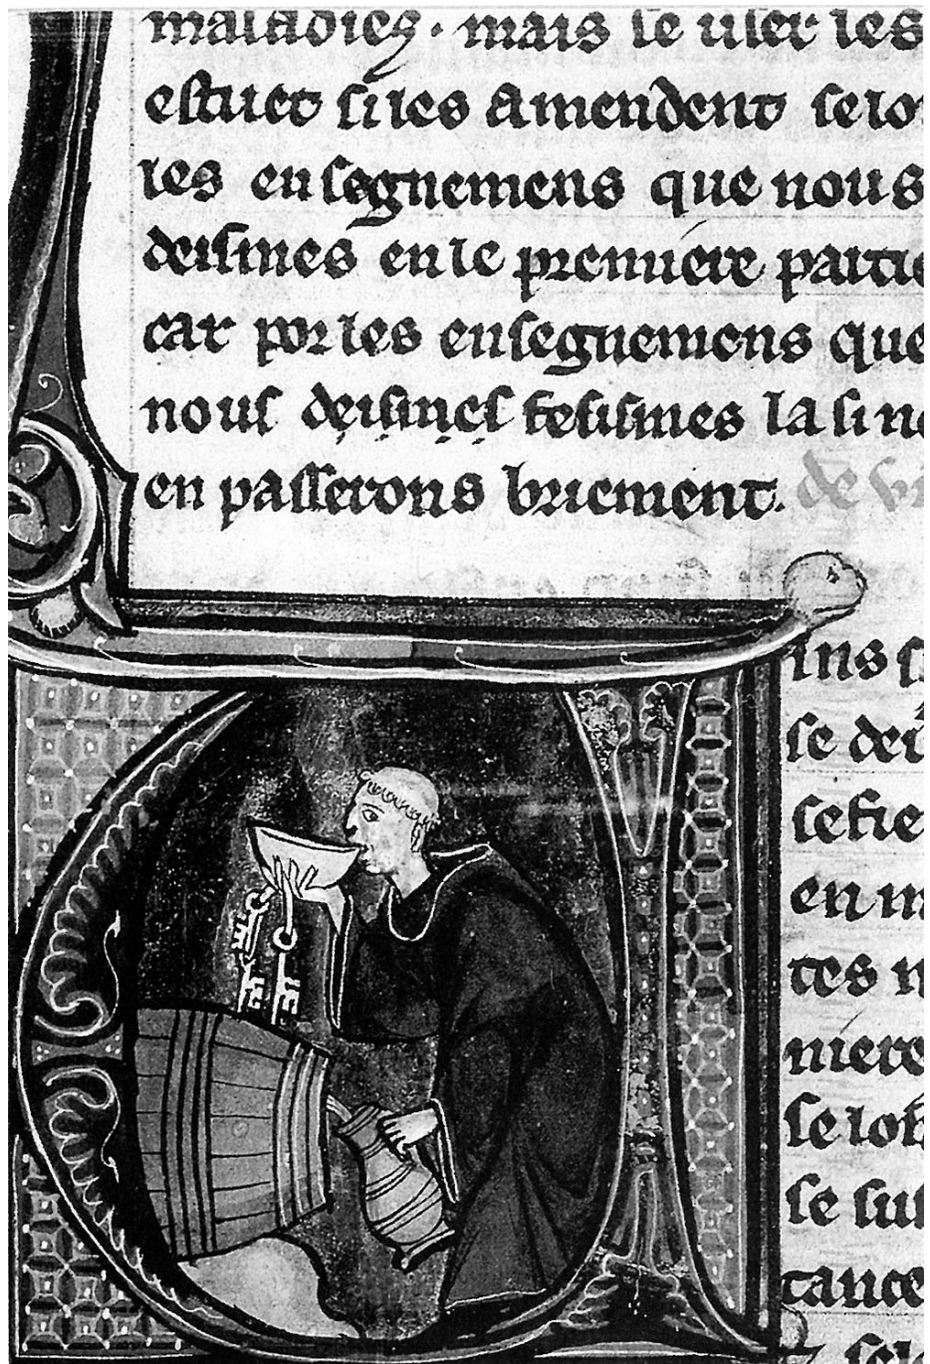 maladies · mais se user les
estuet si les amendent selo
les ensegnemens que nous
deisimes en le premiere partie
car por les ensegnemens que
nous deisimes fesismes la sine
en passerons briement. de vi
ins s
se dei
en m
tes n
niere
se sus
tance